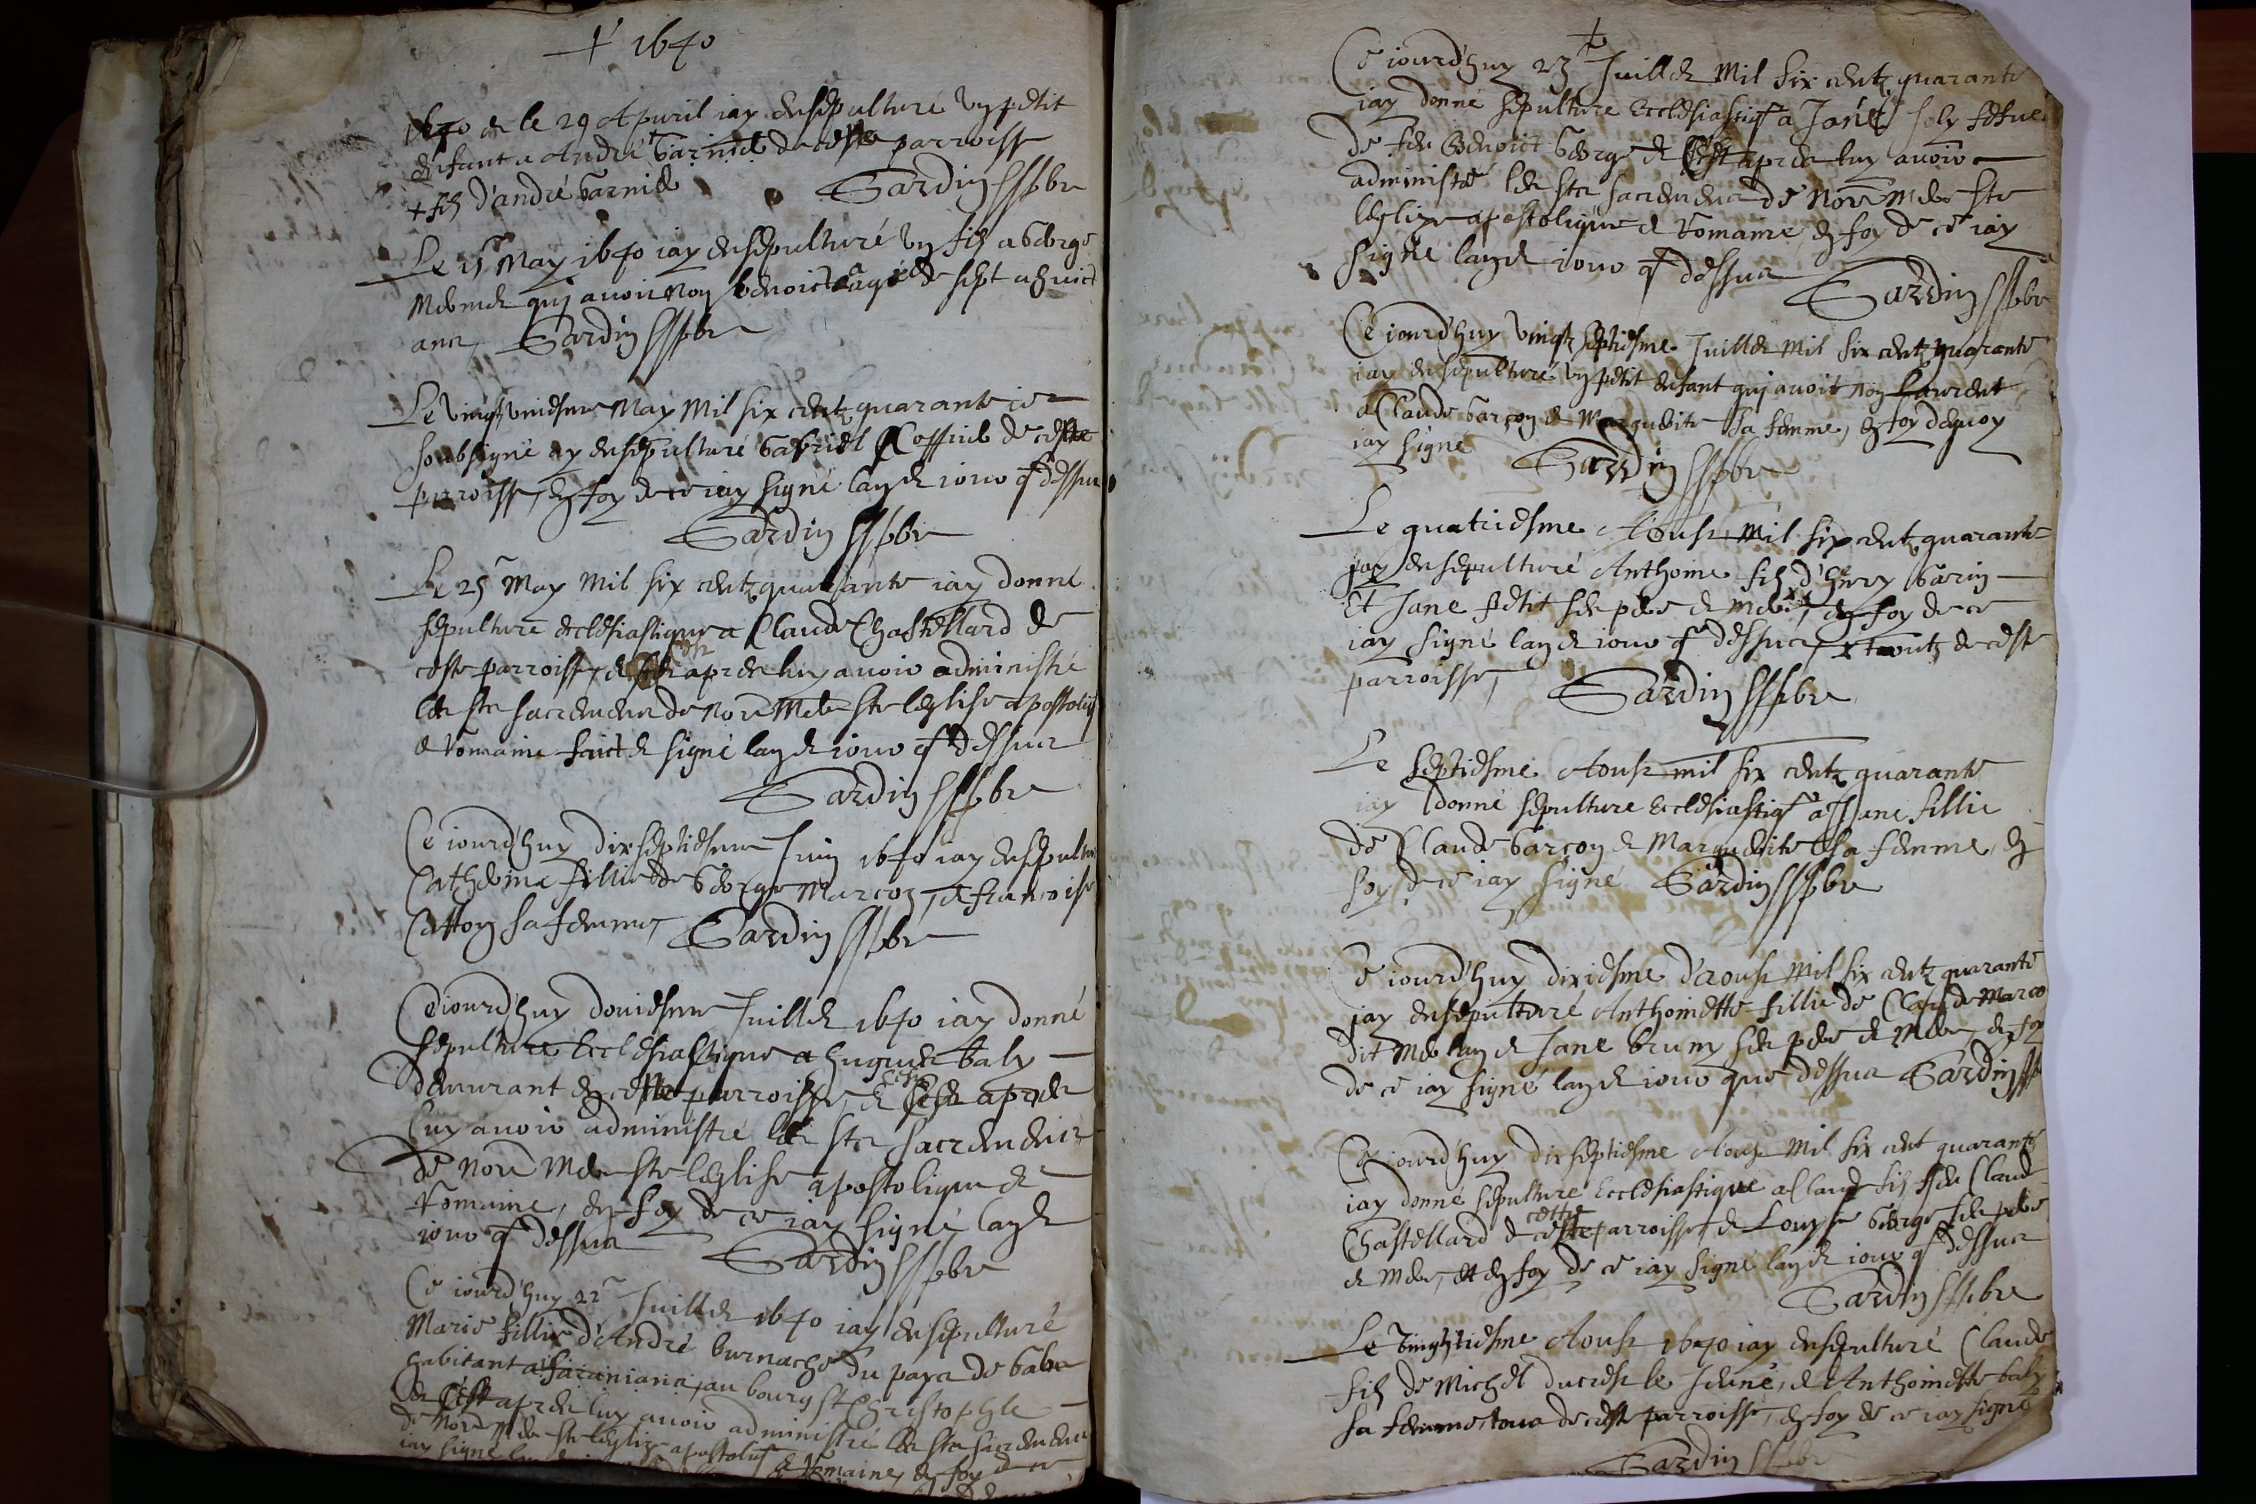 + 1640
1640 et le 29 Apvril iay ensepulturé vn petit
enfant a André Garnier de ceste parroisse
+ filz d'andré Garnier Gardin pbre
Le 15 May 1640 iay ensepulturé vn filz a George
qui avoit nom benoict agé de sept a huict
ans Gardin pbre
Le vingt vniesme May Mil six centz quarante ie
soubsigné ay ensepulturé Gabriel de ceste
parroisse, en foy de ce iay signé l'an et iour q dessus
Gardin pbre
Le 25 May Mil six centz quarante iay donné
sepulture ecclesiastique a Claude Chastellard de
ceste parroisse, et apres luy avoir administré
les sts sacremens de nore mere ste l'eglise apostoliq
et romaine faict et signé l'an et iour q dessus
Gardin pbre
Ce iourd'huy dixseptiesme Iuin 1640 iay ensepulturé
Catherine fillie de George Marcon, et francoise
Catton sa femme, Gardin pbre
Ce iourd'huy Iuillet 1640 iay donné
sepulture Ecclesiastique a hugues baly
demurant en ceste parroisse et apres
luy avoir administré les sts sacremens
de nore mere ste leglise apostolique et
romaine, en foy de ce iay signé l'an et
iour q dessus Gardin pbre
Ce iourd'huy 22 Iuillet 1640 iay ensepulturé
Marie fillie d'André burnache du pays de
habitant a au bourg st Christophle
et apres luy avoir administré les sts sacremens
de nore mere ste leglize apostoliq et romaine, en foy de ce
iay signé
+
Ce iourd'huy 23 Iuillet Mil six centz quarante
iay donné sepulture Ecclesiastiq a Iane
de feu benoict George et apres luy avoir
administré les sts sacremens de nore mere ste
leglize apostolique et romaine, en foy de ce iay
signé l'an et iour q dessus Gardin pbre
Ce iourd'huy vingt septiesme Iuillet mil six centz quarante
iay ensepulturé vn petit enfant qui avoit nom Laurent
a Claude Garcon et Marguerite sa femme, en foy dequoy
iay signé Gardin pbre
Le quatriesme Aoust Mil six centz quarante
iay ensepulturé Anthoine filz d'henry Garin
Et Iane petit ses pere et mere, en foy de ce
iay signé l'an et iour q dessus, et toutz de ceste
parroisse, Gardin pbre
Le septiesme Aoust mil six centz quarante
iay donné sepulture Ecclesiastiq a Iane fillie
de Claude Garcon et Marguerite sa femme, en
foy de ce iay signé Gardin pbre
Ce iourd'huy dixiesme d'aoust Mil six centz quarante
iay ensepulturé Anthoinette fillie de Claude Marco
dit et Iane brun ses pere et mere, en foy
de ce iay signé l'an et iour que dessus Gardin
Ce iourd'huy dixseptiesme Aoust Mil six cent quarante
iay donné sepulture Ecclesiastique a Claude filz feu Claude
Chastellard de ceste parroisse, et Louyse George ses pere
et mere, et en foy de ce iay signé l'an et iour q dessus
Gardin pbre
Le Aoust 1640 iay ensepulturé Claude
filz de Michel ducrest le Ieune, et Anthoinette baly
sa femme, tous de ceste parroisse, en foy de ce iay signé
Gardin pbre